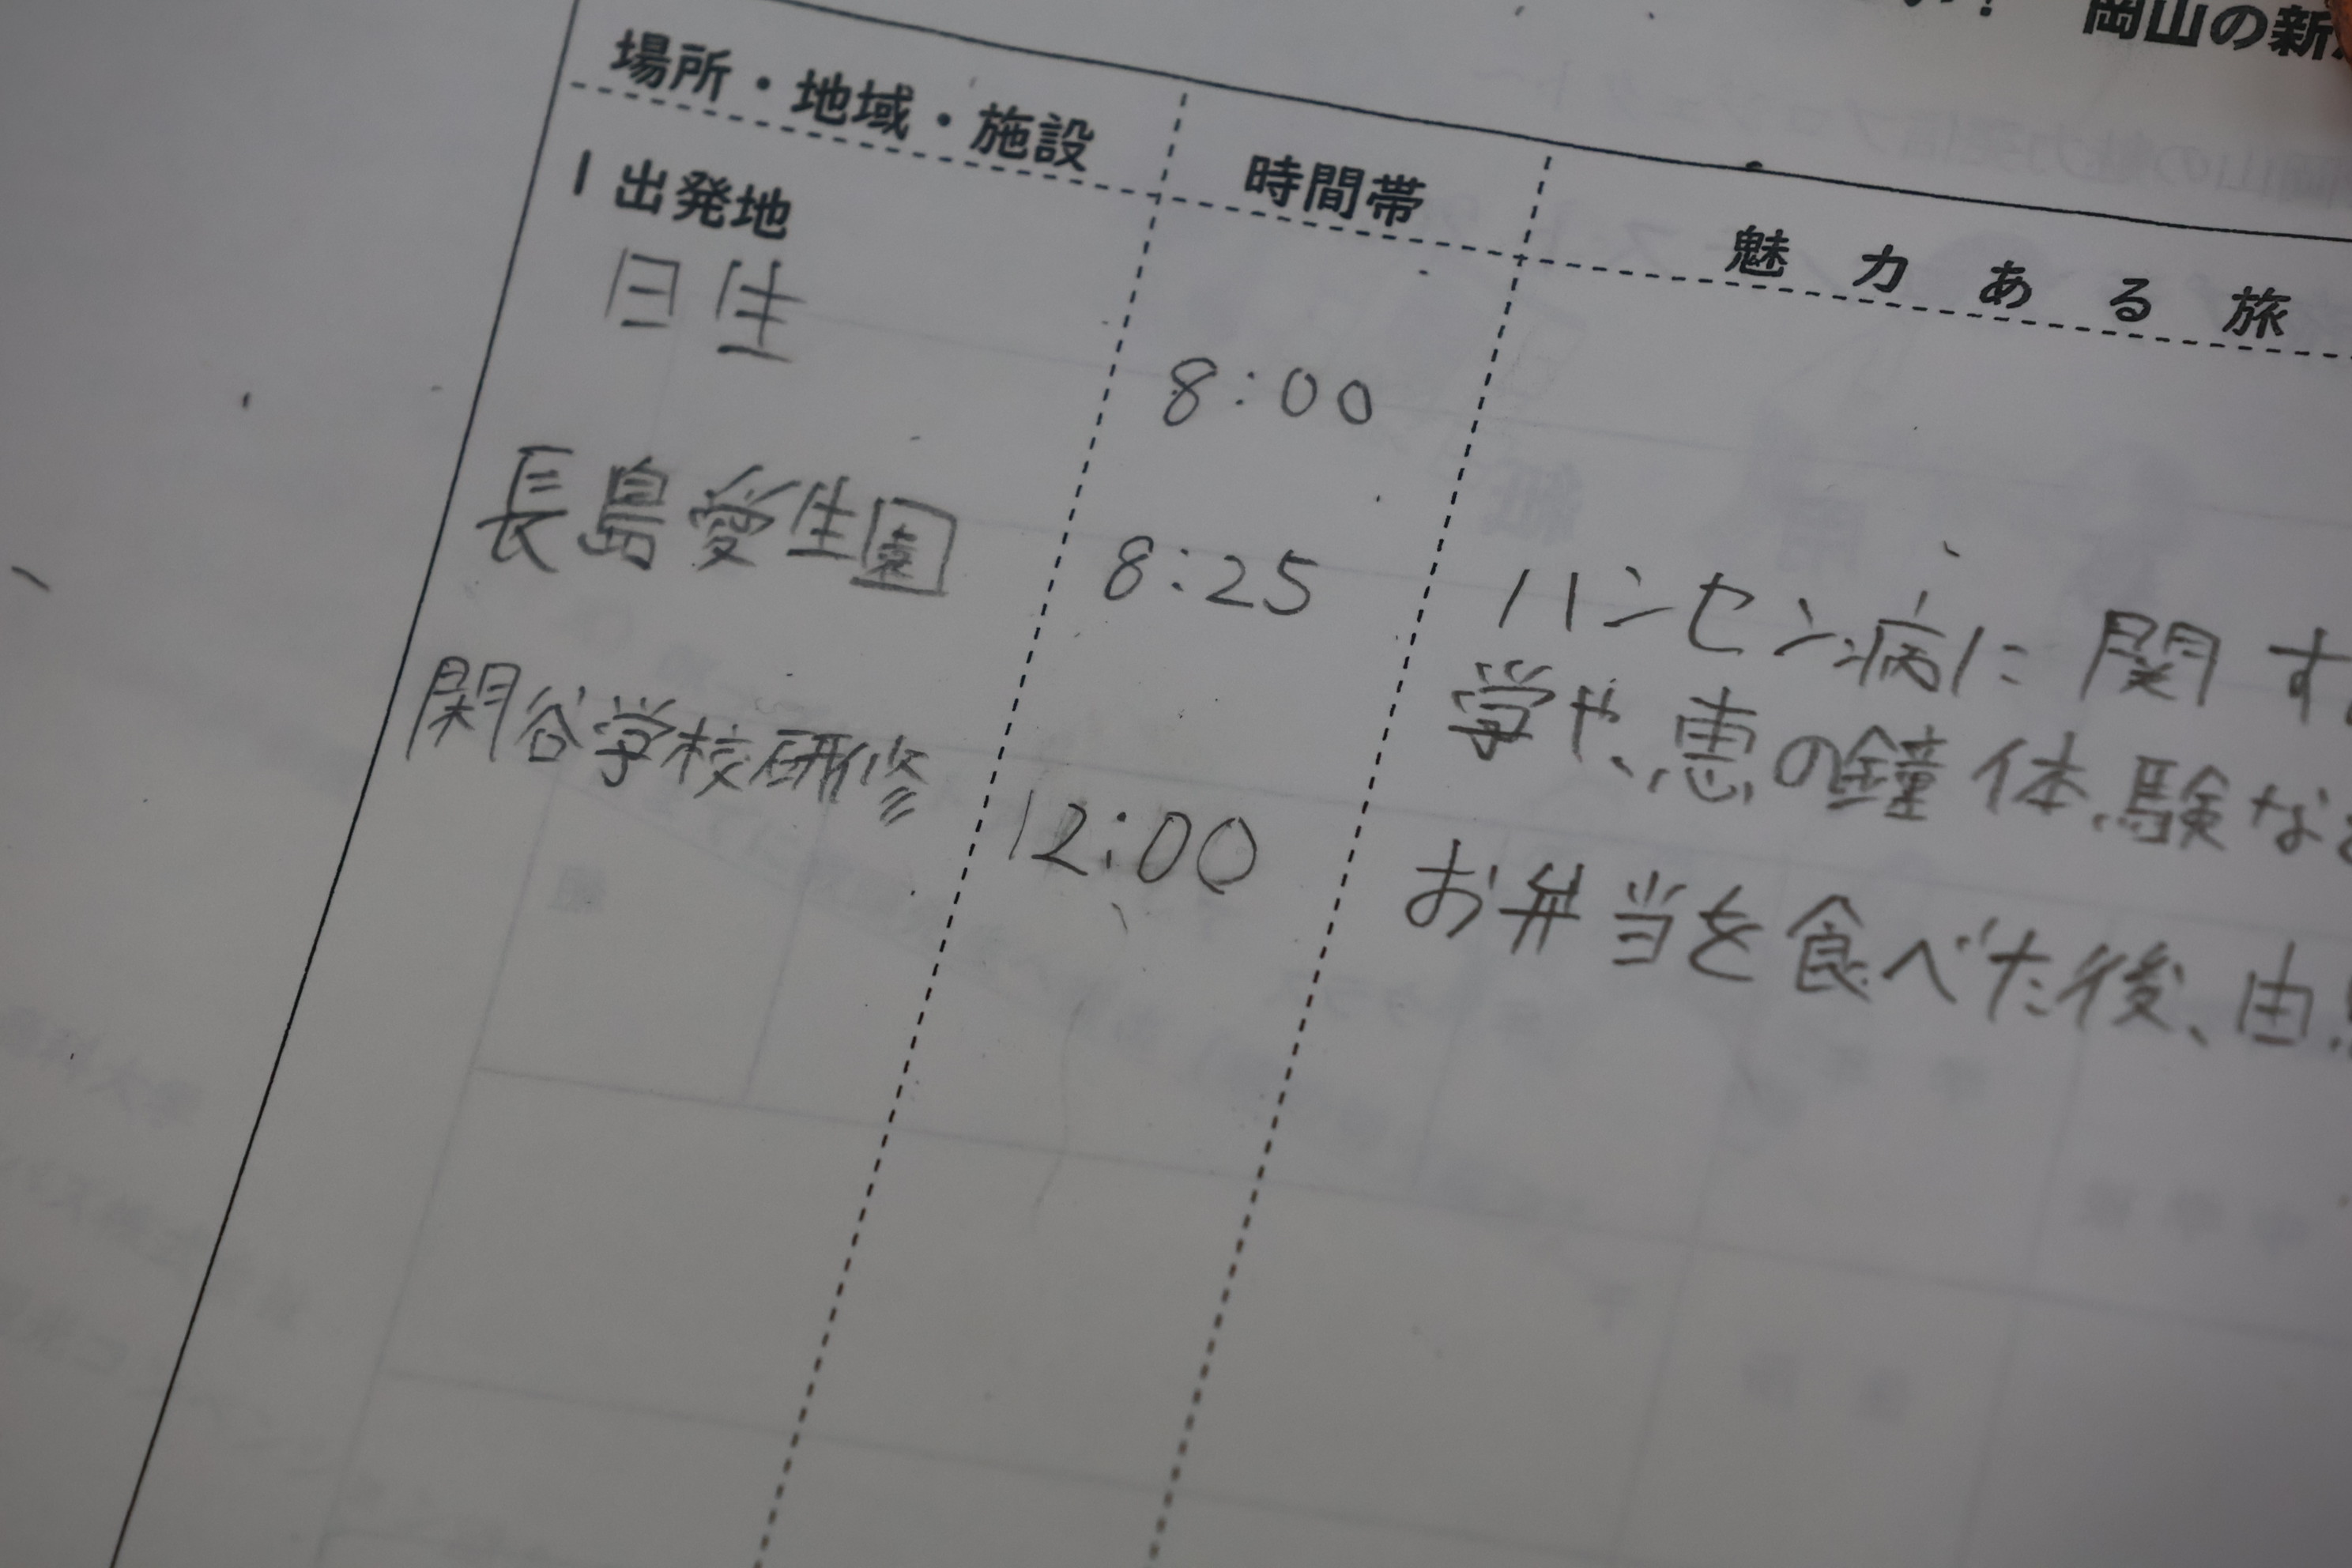 岡山の新
場所・地域・施設
時間帯
魅力ある旅
1 出発地
日生
8:00
長島愛生園
8:25
ハンセン病に関す
学や、恵の鐘体験な
閑谷学校研修
12:00
お弁当を食べた後、由